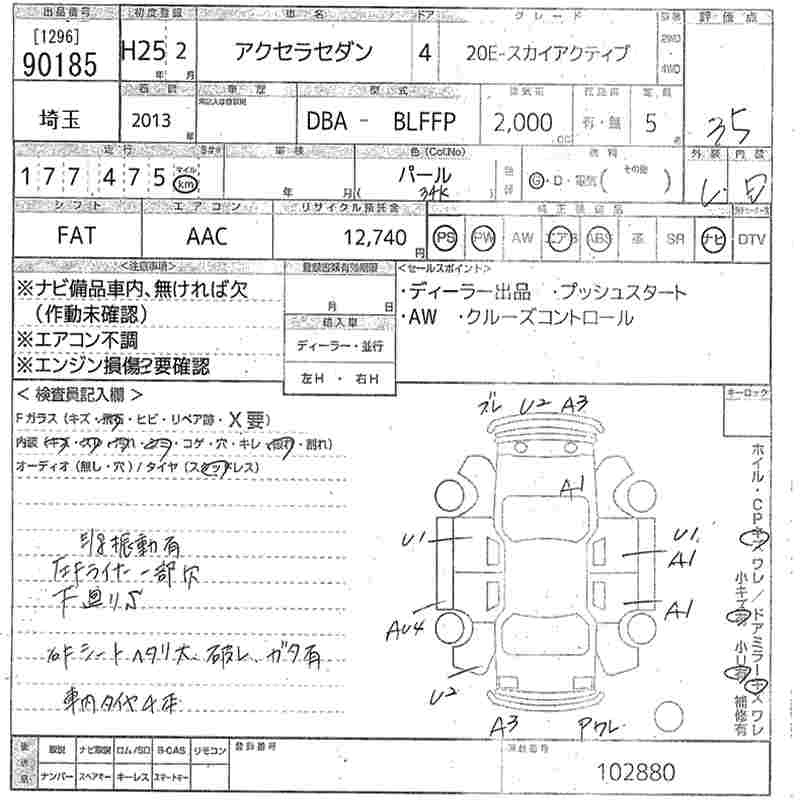 出品番号 初度登録 車名 ドア グレード 評価点
[1296]
90185 H25年 2月 アクセラセダン 4 20E-スカイアクティブ 2WD 4WD
車歴 型式 排気量 定員
埼玉 2013年 DBA - BLFFP 2,000cc 有・無 5名 35
走行 車検 色(Col.No) 燃料 外装 内装
177 475 マイル km 年 月 パール 34K G・D・電気( その他 )
シフト エアコン リサイクル預託金 純正装備品
FAT AAC 12,740円 PS PW AW エアB ABS 革 SR ナビ DTV
<注意事項> 登録書類有効期限 <セールスポイント>
※ナビ備品車内、無ければ欠 ・ディーラー出品 ・プッシュスタート
(作動未確認) 月 日 ・AW ・クルーズコントロール
※エアコン不調 輸入車
※エンジン損傷?要確認 ディーラー・並行
左H ・ 右H
<検査員記入欄> キーロック
Fガラス(キズ・飛石・ヒビ・リペア跡・X要)
内装(キズ・スレ・汚れ・シミ・コゲ・穴・キレ・破れ・割れ)
オーディオ(無し・穴)/タイヤ(スタッドレス)
ズレ U2 A3
A1
U1 U1
A1
A1
AU4
U2
A3 Pワレ
振動有
左Fライナー一部欠
下廻りS
右Fシートヘタリ大、破レ、ガタ有
車内タイヤ4本
ホイル・CPキズワレ/ドアミラーキズワレ
小キズ有 小U有 補修有
後送品 取説 ナビ取説 ロム/SD B-CAS リモコン 登録番号
ナンバー スペアキー キーレス スマートキー 102880